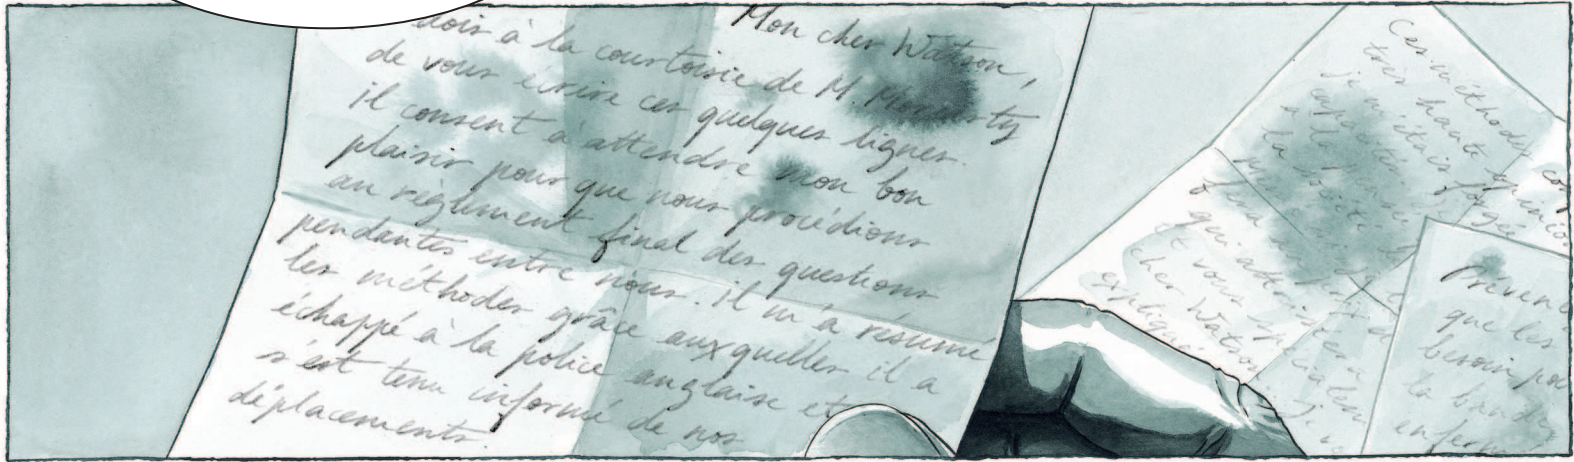 Mon cher Watson,
dois à la courtoisie de M. Moriarty
de vous écrire ces quelques lignes.
il consent à attendre mon bon
plaisir pour que nous procédions
au règlement final des questions
pendantes entre nous. il m'a résumé
les méthodes grâce auxquelles il a
échappé à la police anglaise et
s'est tenu informé de nos
déplacements.
Ces méthodes
très haute opinion
je m'étais forgée
à la
la
qui
et vous
cher Watson.
expliqué
con
Préven
que les
besoin po
la bande
enferm